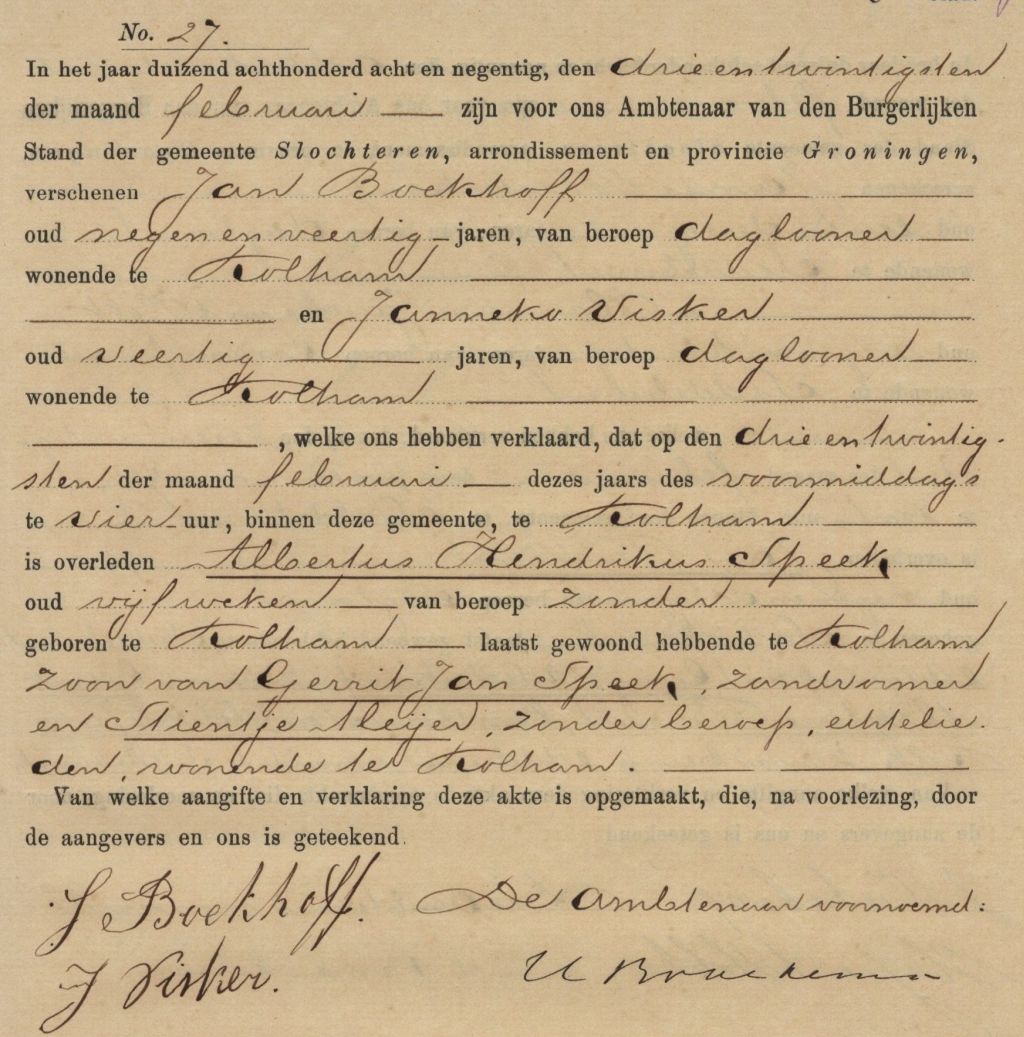 No. 27.
In het jaar duizend achthonderd acht en negentig, den drie en twintigsten
der maand februari — zijn voor ons Ambtenaar van den Burgerlijken
Stand der gemeente Slochteren, arrondissement en provincie Groningen,
verschenen Jan Boekhoff
oud negen en veertig jaren, van beroep daglooner
wonende te Kolham
en Janneko Visker
oud veertig jaren, van beroep daglooner
wonende te Kolham
, welke ons hebben verklaard, dat op den drie en twintig-
sten der maand februari — dezes jaars des voormiddags
te vier uur, binnen deze gemeente, te Kolham
is overleden Albertus Hendrikus Speek
oud vijf weken — van beroep zonder
geboren te Kolham — laatst gewoond hebbende te Kolham
zoon van Gerrit Jan Speek, zandvormer
en Stientje Meijer, zonder beroep, echtelie-
den, wonende te Kolham.
Van welke aangifte en verklaring deze akte is opgemaakt, die, na voorlezing, door
de aangevers en ons is geteekend.
J Boekhoff. De Ambtenaar voornoemd:
J Visker.